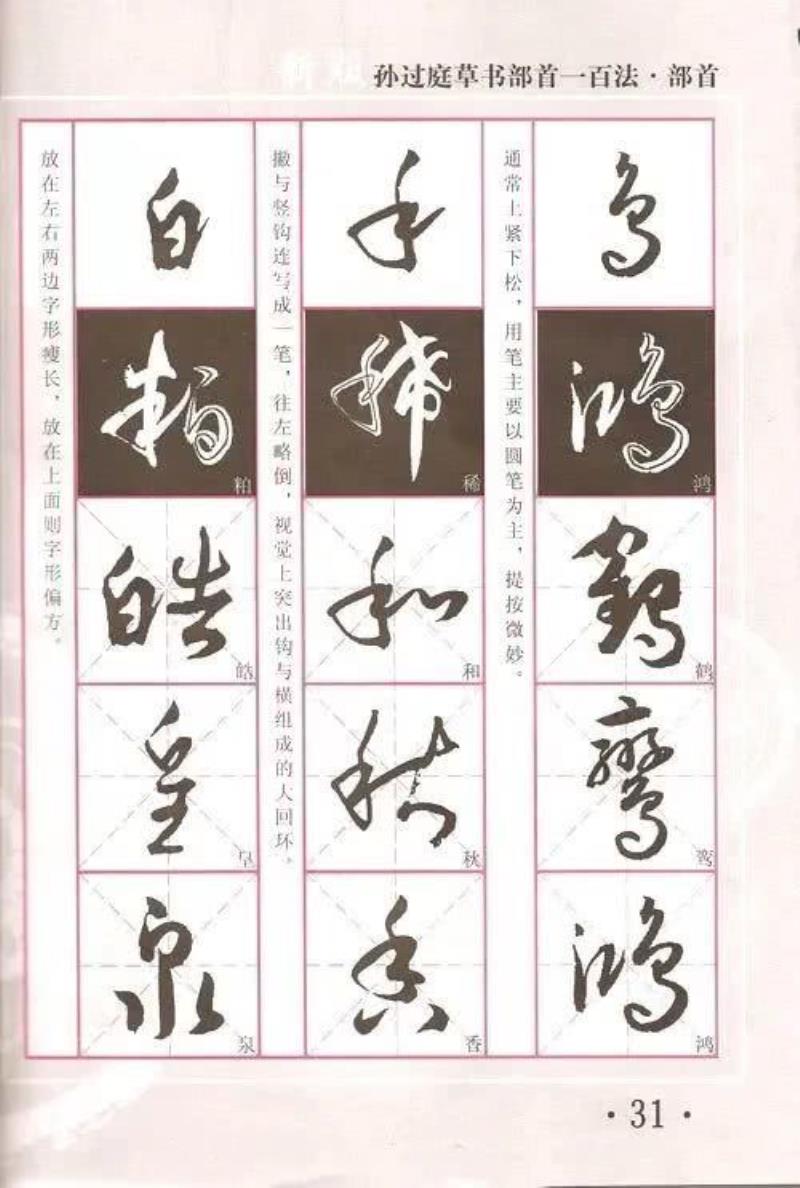 孙过庭草书部首一百法·部首
鸟
鸿
鹤
鸾
鸿
通常上紧下松，用笔主要以圆笔为主，提按微妙。
禾
稀
和
秋
香
撇与竖钩连写成一笔，往左略倒，视觉上突出钩与横组成的大回环。
白
粕
皓
皇
泉
放在左右两边字形瘦长，放在上面则字形偏方。
·31·